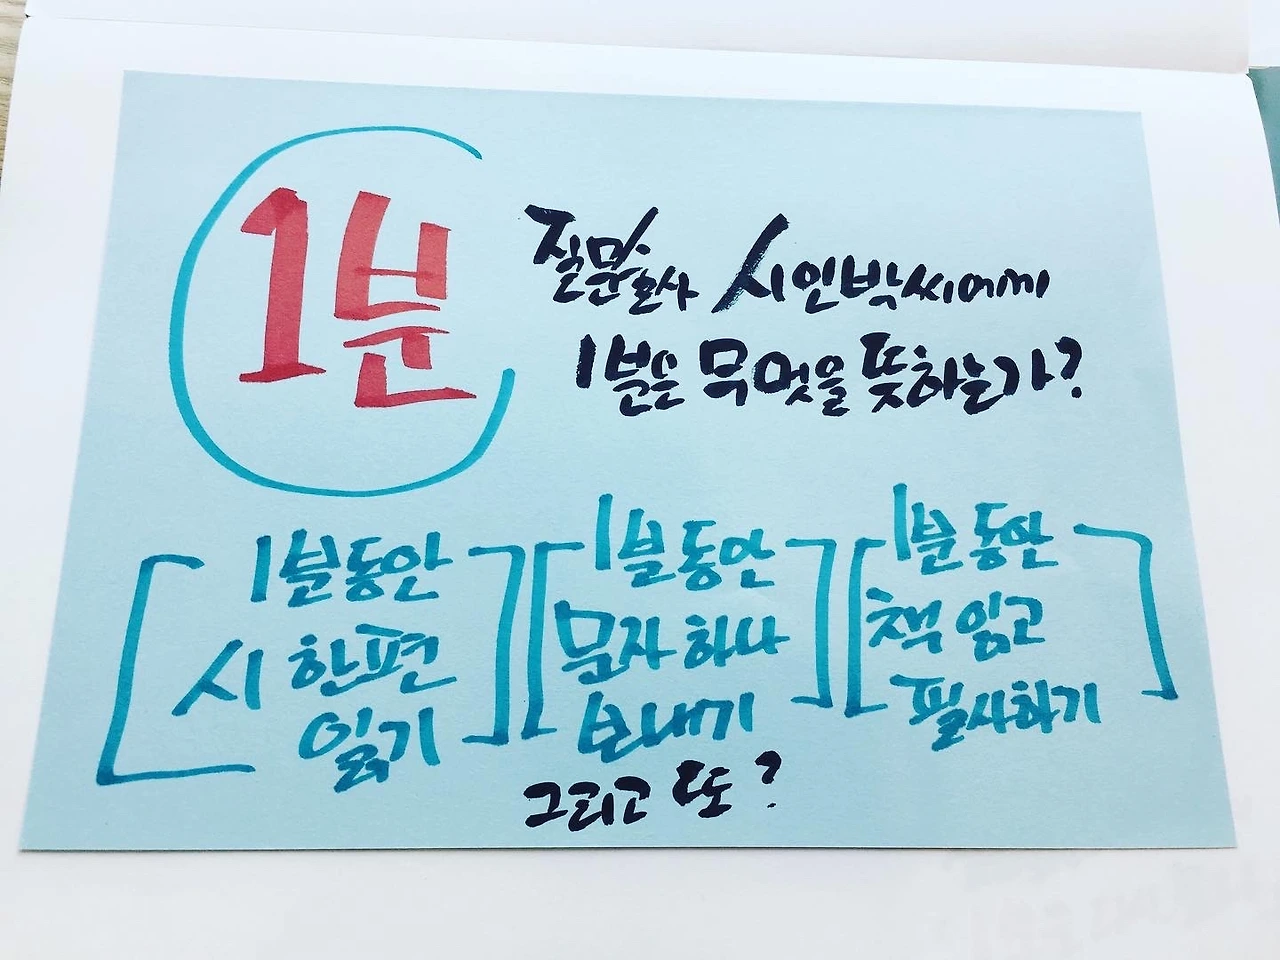 1분
질문술사 시인박씨에게
1분은 무엇을 뜻하는가?
1분 동안
시 한편
읽기
1분 동안
문자 하나
보내기
1분 동안
책 읽고
필사하기
그리고 또?